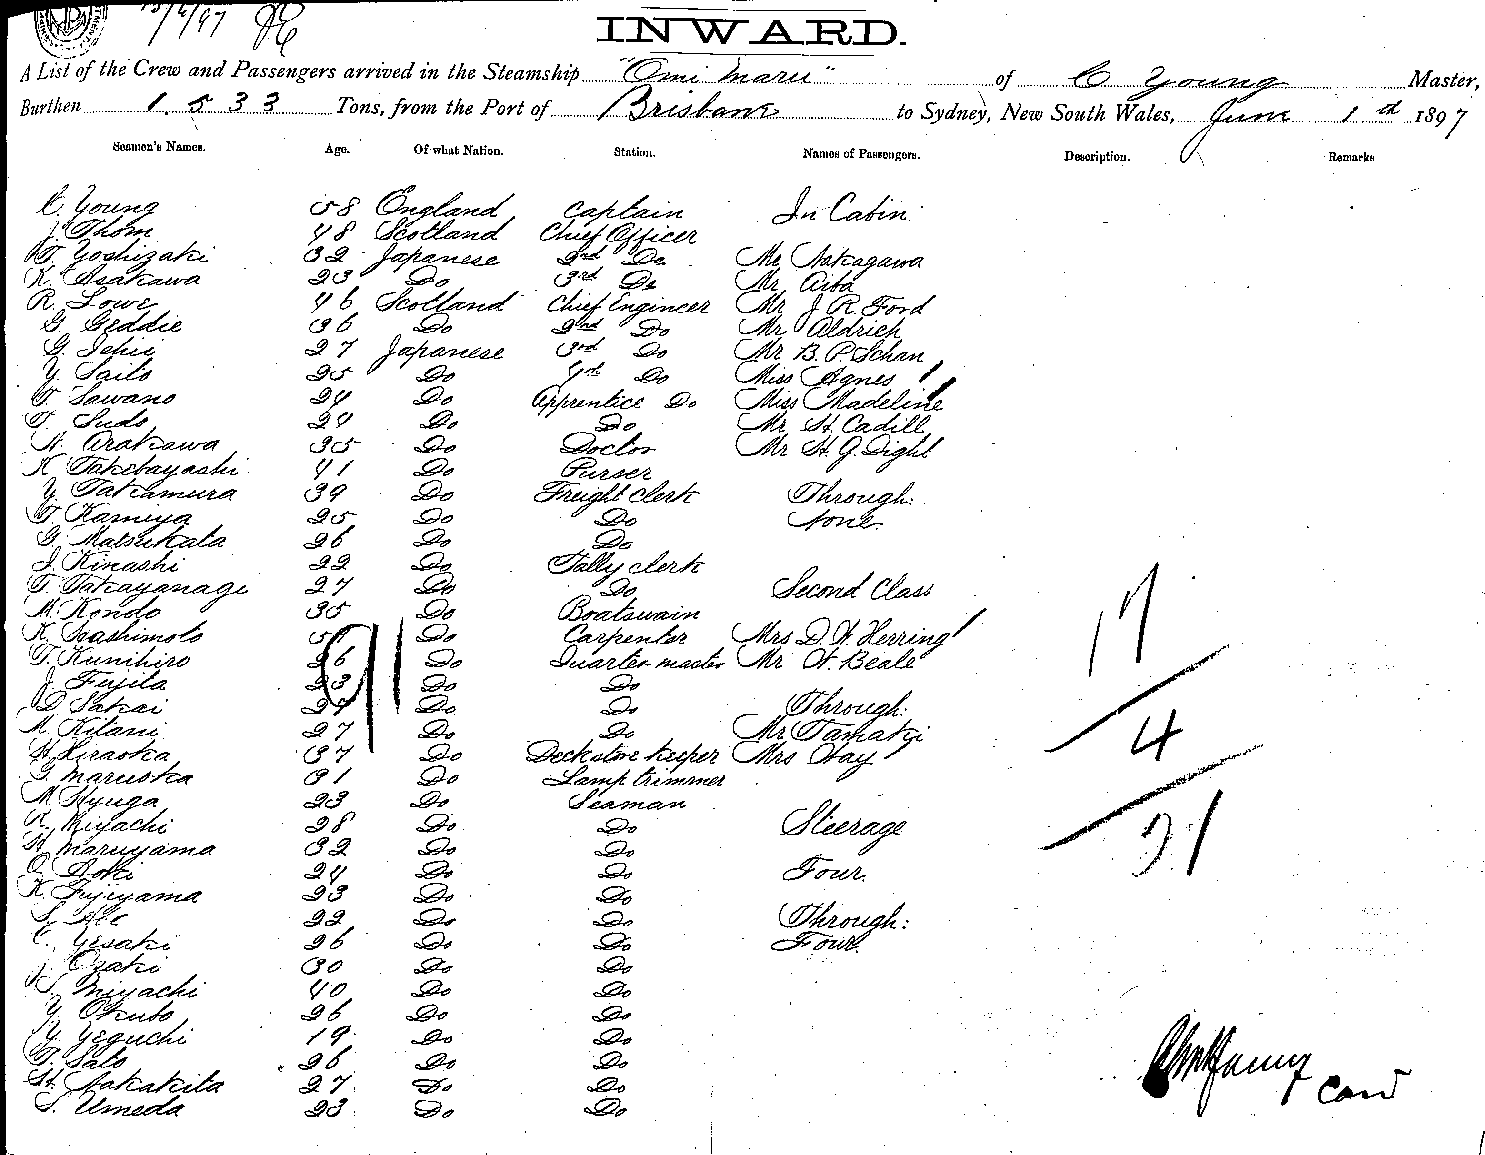 15/6/97
INWARD.
A List of the Crew and Passengers arrived in the Steamship "Omi Maru" of C Young Master,
Burthen 1.533 Tons, from the Port of Brisbane to Sydney, New South Wales, June 1th 1897
Seamen's Names. Age. Of what Nation. Station. Names of Passengers. Description. Remarks
C. Young 58 England Captain In Cabin
J. Thom 48 Scotland Chief Officer
T. Yoshizaki 32 Japanese 2nd Do Mr Nakagawa
K. Asakawa 23 Do 3rd Do Mr Aiba
R. Lowe 46 Scotland Chief Engineer Mr J R Ford
G. Geddie 36 Do 2nd Do Mr Aldrich
G. Ishii 27 Japanese 3rd Do Mr B. P. Schan
Y. Saito 25 Do 4th Do Miss Agnes
T. Sawano 24 Do Apprentice Do Miss Madeline
T. Sudo 24 Do Do Mr St. Cadill
H. Arakawa 35 Do Doctor Mr St. G. Dight
K. Takebayashi 41 Do Purser
Y. Takamura 39 Do Freight clerk Through:
T. Kamiya 25 Do Do None.
G. Matsukata 26 Do Do
J. Kinashi 22 Do Tally clerk
T. Takayanagi 27 Do Do Second Class
M. Kondo 35 Do Boatswain
K. Hashimoto Do Carpenter Mrs D. W. Herring
T. Kunihiro 26 Do Quarter master Mr W. Beale
J. Fujita 23 Do Do
D. Sakai 27 Do Do Through:
M. Kitani 27 Do Do Mr Tamaki
H. Hiraoka 37 Do Deckstore keeper Mrs Hay
G. Maruoka 31 Do Lamp trimmer
M. Hyuga 23 Do Seaman
K. Kiyachi 28 Do Do Steerage
H. Maruyama 32 Do Do
Doki 24 Do Do Four.
K. Fujiyama 23 Do Do
S. Abe 22 Do Do Through:
Yesaki 26 Do Do Four.
Ozaki 30 Do Do
S. Miyachi 40 Do Do
Y. Okubo 26 Do Do
Y. Yeguchi 19 Do Do
T. Sato 26 Do Do
St. Nakakita 27 Do Do
S. Umeda 23 Do Do
91
17
4
21